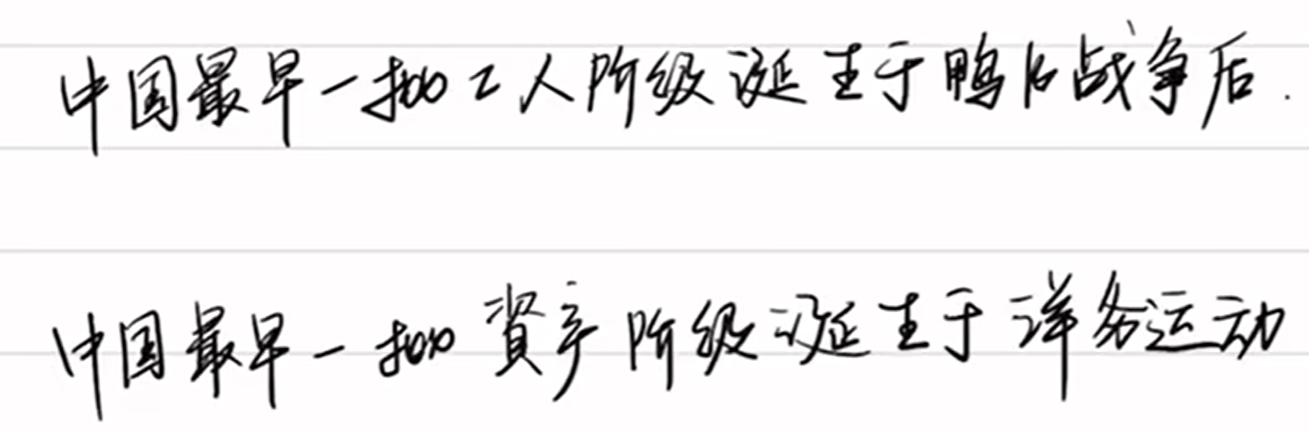 中国最早一批工人阶级诞生于鸦片战争后.
中国最早一批资产阶级诞生于洋务运动